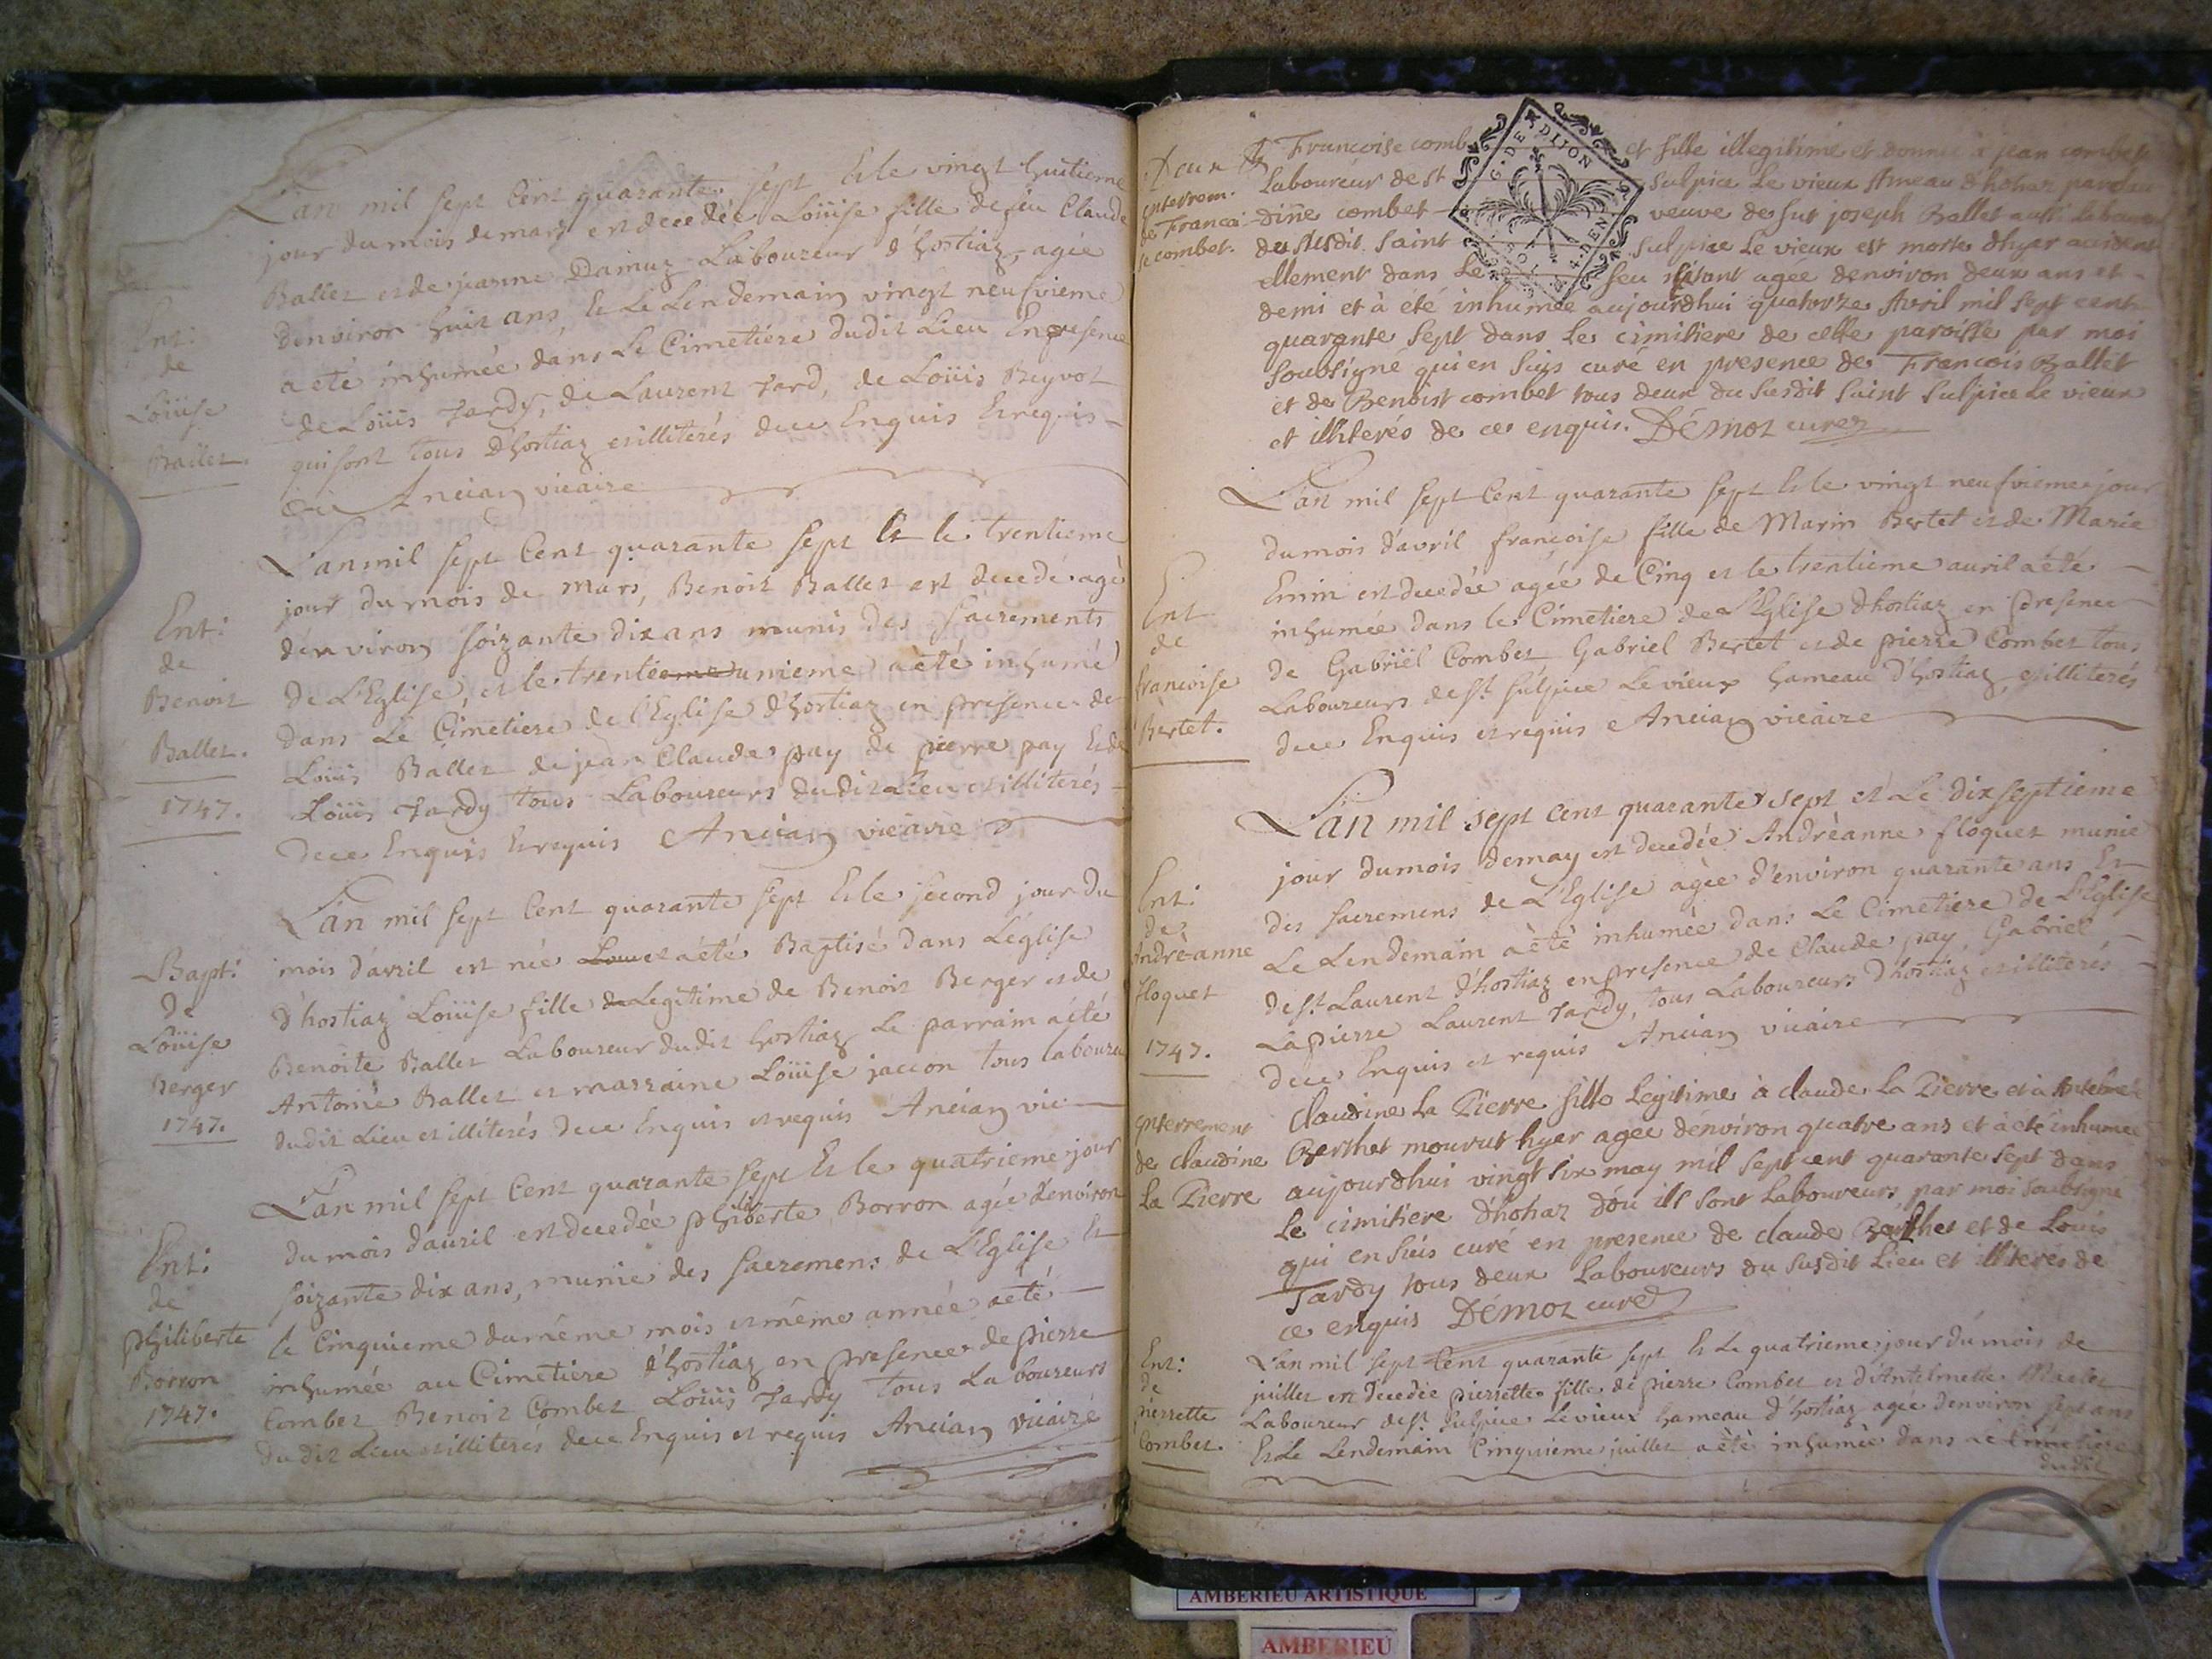 L'an mil sept Cent quarante sept Et le vingt huitieme
jour du mois de mars est decedée Loüise fille de feu Claude
Ballet et de jeanne Dainuz Laboureur d'hostiaz, agée
denviron huit ans, Et Le Lendemain vingt neufvieme
a eté inhumée dans Le Cimetiére dudit Lieu En presence
de Loüis Tardy, de Laurent Tard, de Loüis Reyvot
qui sont tous d'hostiaz et illiterés de ce Enquis Et requis
Ancian vicaire
Ent:
de
Loüise
Ballet.
L'an mil sept Cent quarante sept Et le trentieme
jour du mois de mars, Benoit Ballet est decedé agé
d'environ soixante dix ans munis des sacrements
de L'Eglise, et le trentieeme unieme a èté inhumé
dans Le Cimetiere de l'Eglise d'hostiaz en presence de
Loüis Ballet de jean Claude pay de pierre pay Et de
Loüis Tardy tous Laboureurs dudit Lieu et illiterés
de ce Enquis Et requis Ancian vicaire
Ent:
de
Benoit
Ballet.
1747.
L'an mil sept Cent quarante sept Et le second jour du
mois d'avril est née Lou et a été Baptisé dans L'eglise
d'hostiaz Loüise fille de Legitime de Benoit Berger et de
Benoite Ballet Laboureur dudit hostiaz Le parrain a été
Antoine Ballet et marraine Loüise jaccon tous laboureu
dudit Lieu et illiterés de ce Enquis et requis Ancian vic
Bapt:
de
Loüise
Berger
1747.
L'an mil sept Cent quarante sept Et le quatrieme jour
du mois d'auril est decedée philiberte Borron agée d'environ
soixante dix ans, munie des sacremens de L'Eglise Et
le Cinquieme du même mois et même année a eté
inhumée au Cimetiere d'hostiaz en presence de pierre
Combet Benoit Combet Loüis Tardy tous Laboureurs
du dit Lieu et illiterés de ce Enquis et requis Ancian vicaire
Ent:
de
philiberte
Borron
1747.
enterrem.
de Francoi-
se combet.
Francoise comb et fille illegitime et donnée à jean combet
Laboureur de st Sulpice Le vieux Ameau d'hohaz par clau
dine combet veuve de fut joseph Ballet aussi labour
du susdit Saint Sulpice Le vieux est morte d'hyer accident
ellement dans Le feu étant agée denviron deux ans et
demi et à été inhumée aujourdhui quatorze Avril mil sept cent
quarante sept dans Le cimitiere de cette paroisse par moi
soubsigné qui en suis curé en presence de Francois Ballet
et de Benoist combet tous deux du susdit Saint Sulpice Le vieux
et illiterés de ce enquis. Démoz curé
L'an mil sept Cent quarante sept Et le vingt neufvieme jour
du mois d'avril françoise fille de Marin Bertet et de Marie
Emin est decedée agée de Cinq et le trentieme auril a été
inhumée dans le Cimetiere de L'Eglise d'hostiaz en presence
de Gabriël Combet Gabriel Bertet et de pierre Combet tous
Laboureurs de st Sulpice Le vieux hameau d'hostiaz, et illiterés
de ce Enquis et requis Ancian vicaire
Ent
de
francoise
Bertet.
L'an mil sept Cent quarante sept et Le dix septieme
jour du mois de may est decedée Andrèanne floquet munie
des sacremens de L'Eglise agèe d'environ quarante ans Et
Le Lendemain a été inhumée dans Le Cimetiere de L'Eglise
de st Laurent d'hostiaz en presence de Claude pay, Gabriel
Lapierre Laurent Tardy, tous Laboureurs d'hostiaz et illiterés
de ce Enquis et requis Ancian vicaire
Ent:
de
Andrè-anne
floquet
1747.
enterrement
de claudine
La Pierre
claudine La Pierre fille Legitime à claude La Pierre et à Antelme
Berthet mourut hyer agée d'environ quatre ans et à été inhumée
aujourdhui vingt six may mil sept cent quarante sept dans
Le cimitiere d'hohaz d'où ils sont Laboureurs par moi soubsigné
qui en suis curé en presence de claude Berthet et de Louis
Tardy tous deux Laboureurs du susdit Lieu et illiterés de
ce enquis Démoz curé
Ent:
de
pierrette
Combet.
L'an mil sept Cent quarante sept Et Le quatrieme jour du mois de
juillet est decedée pierrette fille de pierre Combet et d'Antelmette
Laboureur de st Sulpice Le vieux hameau d'hostiaz agée d'environ sept ans
Et Le Lendemain Cinquieme juillet a été inhumée dans Le Cimetiere
dudit
G. DE DIJON
AMBERIEU ARTISTIQUE
AMBERIEU